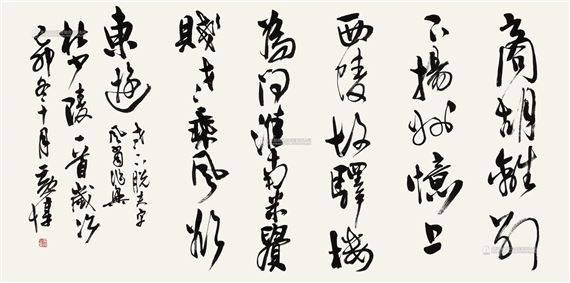 商胡離別
下揚州憶上
西陵故驛樓
為問淮南米貴
賤老乘風欲
東遊
老下脫夫字
杜少陵一首歲次
己卯冬十月